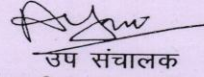 उप संचालक